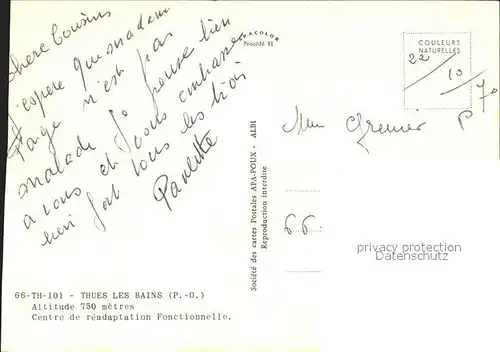 Chere Cousine
J'espere que madame
Paige n'est pas
malade Je pense bien
a vous et vous embrasse
bien fort tous les trois
Paulette
ACOLOR
Procédé 81
COULEURS
NATURELLES
22
10
70
Grenier P
66
Société des cartes Postales APA-POUX - ALBI
Reproduction interdite
privacy protection
Datenschutz
66-TH-101 - THUES LES BAINS (P.-O.)
Altitude 750 mètres
Centre de réadaptation Fonctionnelle.